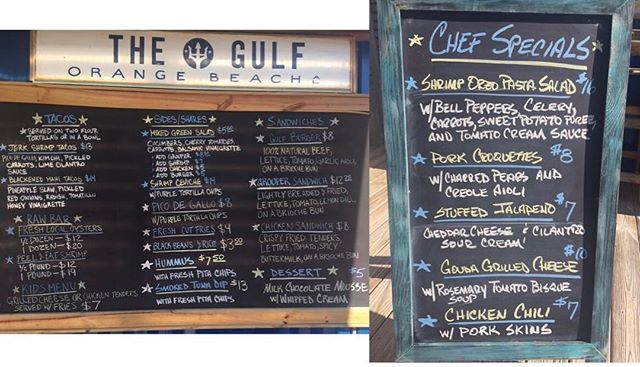 THE GULF
ORANGE BEACH
TACOS
SERVED ON TWO FLOUR
TORTILLAS OR IN A BOWL
JERK SHRIMP TACOS $13
KIMCHI, PICKLED
CARROTS, LIME CILANTRO
SAUCE
BLACKENED MAHI TACOS $14
PINEAPPLE SLAW, PICKLED
RED ONIONS, RADISH, TOMATILLO
HONEY VINAIGRETTE
RAW BAR
FRESH LOCAL OYSTERS
1/2 DOZEN - $12
1 DOZEN - $20
PEEL & EAT SHRIMP
1/2 POUND - $12
1 POUND - $19
KIDS MENU
GRILLED CHEESE OR CHICKEN TENDERS
SERVED W/ FRIES $7
SIDES/SHARES
MIXED GREEN SALAD
CUCUMBERS, CHERRY TOMATOES,
CARROTS, BALSAMIC VINAIGRETTE
+ ADD GROUPER
+ ADD SHRIMP
+ ADD CHICKEN
+ ADD BURGER
SHRIMP CEVICHE $14
W/ PURPLE TORTILLA CHIPS
PICO DE GALLO $8
W/ PURPLE TORTILLA CHIPS
FRESH CUT FRIES $4
BLACK BEANS & RICE $3.00
HUMMUS $7.50
WITH FRESH PITA CHIPS
SMOKED TUNA DIP $13
WITH FRESH PITA CHIPS
SANDWICHES
GULF BURGER $8
100% NATURAL BEEF,
LETTUCE, TOMATO, GARLIC AIOLI,
ON A BRIOCHE BUN
GROUPER SANDWICH
LIGHTLY BREADED & FRIED,
LETTUCE, TOMATO, LEMON DILL
ON A BRIOCHE BUN
CHICKEN SANDWICH $8
CRISPY FRIED TENDERS,
LETTUCE, TOMATO, SPICY
BUTTERMILK, ON A BRIOCHE BUN
DESSERT $5
MILK CHOCOLATE MOUSSE
W/ WHIPPED CREAM
CHEF SPECIALS
SHRIMP ORZO PASTA SALAD $16
W/ BELL PEPPERS, CELERY,
CARROTS, SWEET POTATO PUREE,
AND TOMATO CREAM SAUCE
PORK CROQUETTES $8
W/ CHARRED PEARS AND
CREOLE AIOLI
STUFFED JALAPENO $7
CHEDDAR CHEESE & CILANTRO
SOUR CREAM
$10
GOUDA GRILLED CHEESE
W/ ROSEMARY TOMATO BISQUE
SOUP
$7
CHICKEN CHILI
W/ PORK SKINS